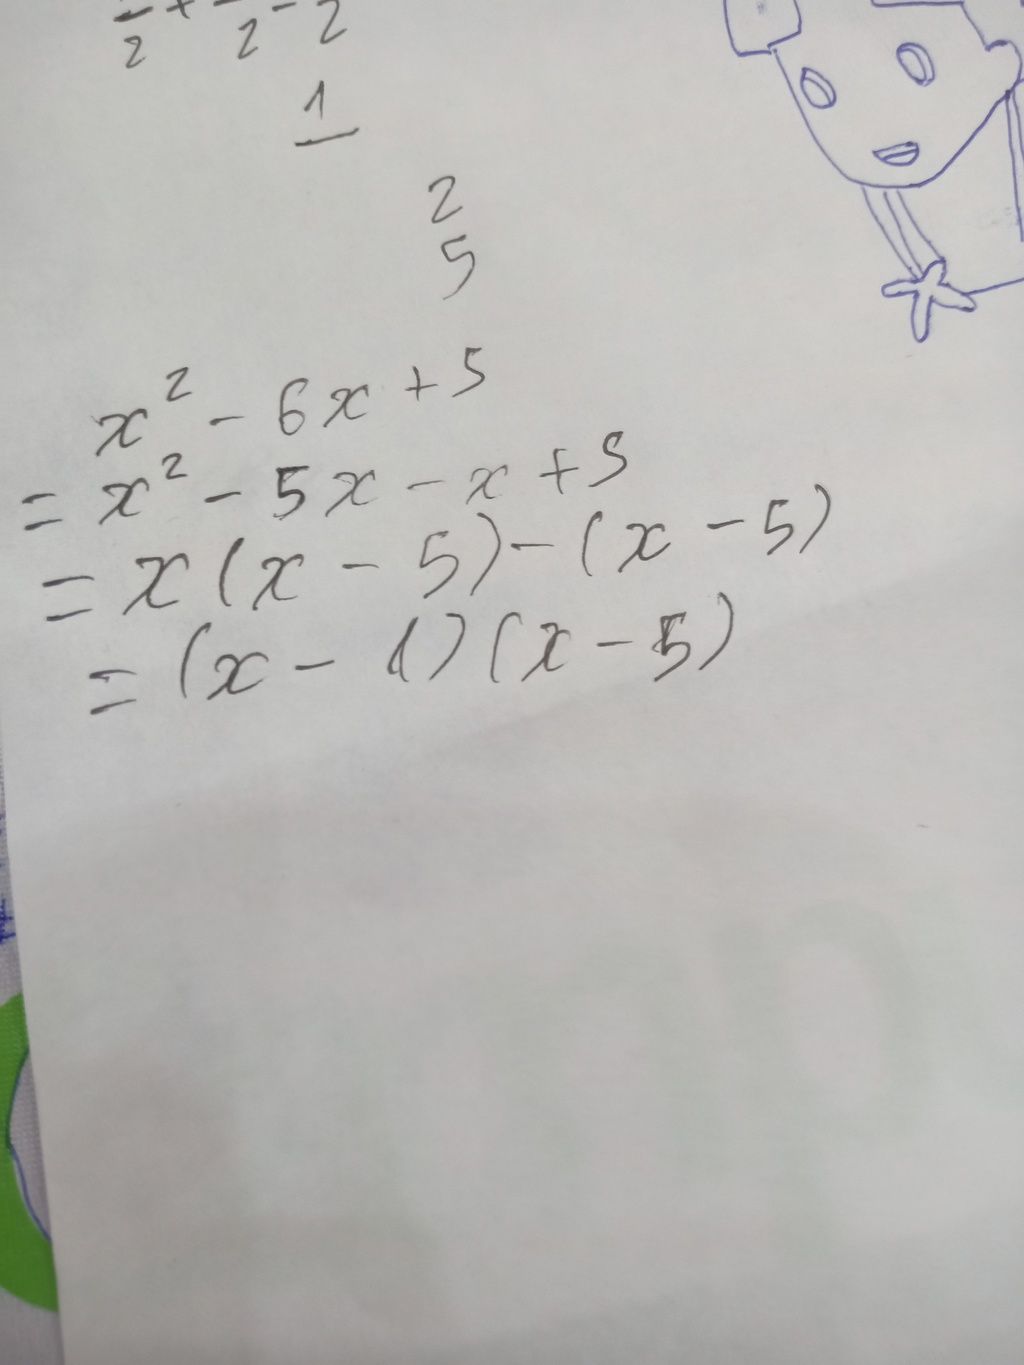 2 + 2 - 2
1
2
5
x² - 6x + 5
= x² - 5x - x + 5
= x (x - 5) - (x - 5)
= (x - 1) (x - 5)